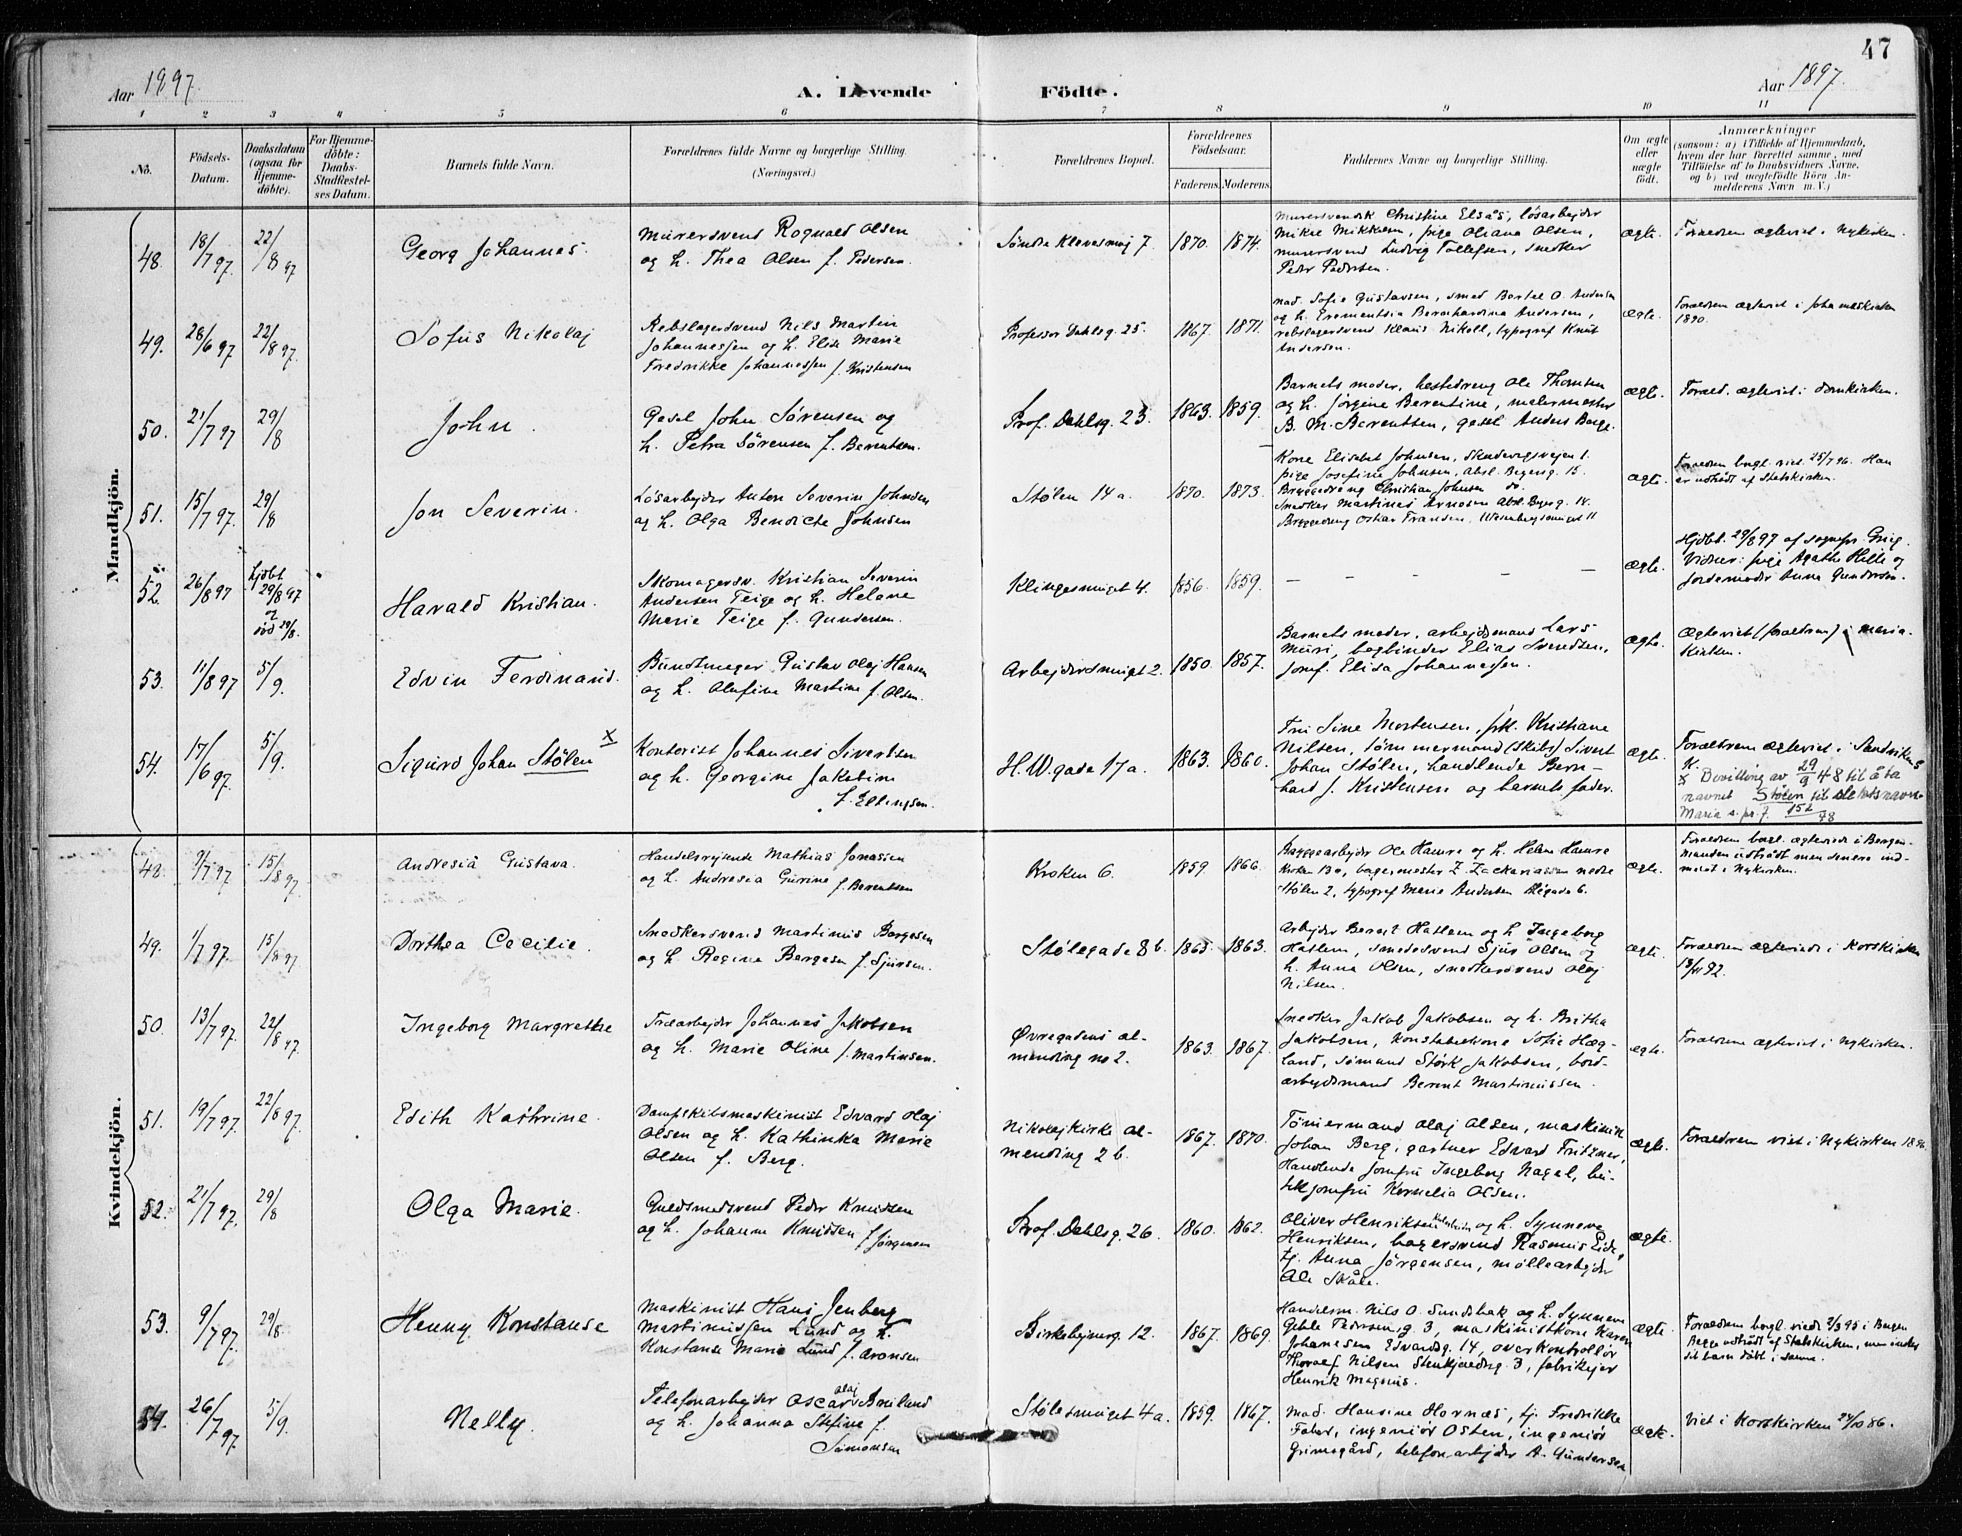 47
Aar 1897.
A. Levende
Födte.
Aar 1897.
1 2 3 4 5 6 7 8 9 10 11
No.
Födsels-Datum.
Daabsdatum (ogsaa for Hjemme-döbte).
For Hjemme-döbte: Daabs-Stadfæstel-ses Datum.
Barnets fulde Navn.
Forældrenes fulde Navne og borgerlige Stilling.
(Næringsvei.)
Forældrenes Bopæl.
Forældrenes Födselsaar.
Faderens.
Moderens.
Faddernes Navne og borgerlige Stilling.
Om ægte eller uægte födt.
Anmærkninger
(saasom: a) i Tilfælde af Hjemmedaab,
hvem der har forrettet samme, med
Tilföielse af to Daabsvidners Navne,
og b) ved uægtefödte Börn An-
melderens Navn m. V.)
Mandkjön.
48. 18/7 97. 22/8 97
Georg Johannes.
Murersvend Rognald Olsen
og h. Thea Olsen f. Pedersen.
Søndre Klevesmug 7. 1870. 1874.
Murersvendsk Christine Elsås, løsarbejder
Mikal Mikkelsen, pige Oliana Olsen,
murersvend Ludvig Tollefsen, snedker
Peder Pedersen.
ægte. Forældrene ægteviet i Nykirken.
49. 28/6 97 22/8 97.
Sofus Nikolaj
Rebslagersvend Nils Martin
Johannessen og h. Elise Marie
Fredrikke Johannessen f. Kristensen
Professor Dahlsg. 25. 1867. 1871.
mad. Sofie Gustavsen, smed Bertel O. Andersen
og h. Bernhardina Andersen,
rebslagersvend Klaus Nikoll, typograf Knut
Andersen.
ægte. Forældrene ægteviet i Johanneskirken
1890.
50. 21/7 97 29/8
John.
Gesel John Sørensen og
h. Petra Sørensen f. Berentsen.
Prof. Dahlsg. 23. 1863. 1859.
Barnets moder, hestedreng Ole Thomsen
og h. Jørgine Berentine, malermester
B. M. Berentsen, gesel Anders Berge.
ægte. Foræld. ægteviet i domkirken.
51. 15/7 97. 29/8
Jon Severin.
Løsarbejder Anton Severin Johnsen
og h. Olga Bendicte Johnsen
Stølen 14 a. 1870. 1873.
Kone Elisabet Johnsen, Skuteviksvejen 1.
pige Josefine Johnsen, Absl. Beyersg. 15.
Bryggedreng Christian Johnsen do.
Snedker Martinus Arnesen Absl. Beyersg. 14.
Bryggedreng Oskar Frandsen, 11
ægte. Forældrene borgl. viet 25/7 96. Han
er udtrådt af Statskirken.
52. 26/8 97 hjdbt 29/8 97 og død 29/8.
Harald Kristian.
Skomagersv. Kristian Severin
Andersen Teige og h. Helene
Marie Teige f. Gundersen.
Klingesmuget 4. 1856. 1859.
– – – – –
ægte. Hjdbt. 29/8 97 af sognepr. Grieg.
Vidner: pige Agathe Helle og
Jordemoder Anna Gundersen.
53. 11/8 97 5/9.
Edvin Ferdinand.
Bundtmager Gustav Olaj Hansen
og h. Olufine Martine f. Olsen.
Arbejdersmuget 2. 1850. 1857.
Barnets moder, arbejdsmand Lars
Muri, bogbinder Elias Svendsen,
Jomf. Elisa Johannessen.
ægte. Ægteviet (forældrene) i Maria-
kirken.
54. 17/6 97. 5/9.
Sigurd Johan Stølen x
Kontorist Johannes Sivertsen
og h. Georgine Jakobine
f. Ellingsen.
H. W. gade 17 a. 1863. 1860.
Fru Sine Mortensen, frk. Kristiane
Nilsen, tømmermand (skibs) Sivert
Johan Stølen, handlende Bern-
hard J. Kristensen og barnets fader.
ægte. Forældrene ægteviet i Sandvikens
K.
x Bevilling av 29/9 48 til å ta
navnet Stølen til slektsnavn.
Maria s. pr. j. 152/48
Kvindekjön.
48. 7/7 97 15/8 97.
Andresia Gustava.
Handelsrejsende Mathias Jonassen
og h. Andresia Gurine f. Berentsen
Kroken 6. 1859. 1866.
Bryggearbejder Ole Hamre og h. Helene Hamre
Kroken 6a, bagermester Z. Zackariassen nedre
Stølen 2, typograf Marie Andersen Algade 6.
ægte. Forældrene borgl. ægteviede i Bergen
Manden udtrådt men senere ind-
meldt i Nykirken.
49. 1/7 97. 15/8 97.
Dorthea Cecilie.
Snedkersvend Martinus Børgesen
og h. Regine Børgesen f. Sjursen.
Stølegade 8 b. 1865. 1863.
Arbejder Berent Hatlem og h. Ingeborg
Hatlem, smedesvend Sjur Olsen og
h. Anna Olsen, snedkersvend Olaj
Nilsen.
ægte. Forældrene ægteviede i Korskirken
13/11 92.
50. 13/7 97. 22/8 97.
Ingeborg Margrethe
Træarbejder Johannes Jakobsen
og h. Marie Oline f. Martinsen.
Øvregadens al-
mending no 2. 1863. 1867.
Snedker Jakob Jakobsen og h. Britha
Jakobsen, konstabelkone Sofie Hæg-
land, sømand Størk Jakobsen, bord-
arbejdsmand Berent Martinussen.
ægte. Forældrene ægteviet i Nykirken.
51. 19/7 97. 22/8 97.
Edith Kathrine.
Dampskibsmaskinist Edvard Olaj
Olsen og h. Kathinka Marie
Olsen f. Berg.
Nikolaj kirke al-
mending 2 b. 1867. 1870.
Tømmermand Olaj Olsen, maskinist
Johan Berg, gartner Edvard Fritzner,
Handlende jomfru Ingeborg Nagel, bu-
tikjomfru Kornelia Olsen.
ægte. Forældrene viet i Nykirken 1896.
52. 21/7 97. 29/8
Olga Marie.
Guldsmedsvend Peder Knudsen
og h. Johanne Knudsen f. Jørgensen
Prof. Dahlsg. 26. 1860. 1862.
Oliver Henriksen og h. Synneve
Henriksen, bagersvend Rasmus Eide,
tj. Anna Jørgensen, møllearbejder
Ole Skåle.
ægte.
53. 9/7 97. 29/8.
Henny Konstanse
Maskinist Hans Jenberg
Martinussen Lund og h.
Konstanse Marie Lund f. Aronsen
Birkebejnerg. 12. 1867. 1869.
Handelsm. Nils O. Sundsbak og h. Synneve
Geble Pedersensg. 3, maskinistkone Karen
Johannesen Edvardsg. 14, overkontrollør
Thoralf Nilsen Stenkjeldersg. 3, fabrikejer
Henrik Magnus.
ægte. Forældrene borgl. viede 3/3 95 i Bergen
Begge udtrådt af Statskirken, men ønsker
sit barn døbt i samme.
54. 26/7 97. 5/9.
Nelly.
Telefonarbejder Oscar Olaj Breiland
og h. Johanna Stefine f.
Simonsen
Stølesmuget 4 a. 1859. 1867.
Mad. Hansine Hornæs, tj. Fredrikke
Faber, ingeniør Osten, ingeniør
Grimsgård, telefonarbejder A. Gundersen
ægte. Viet i Korskirken 24/10 86.